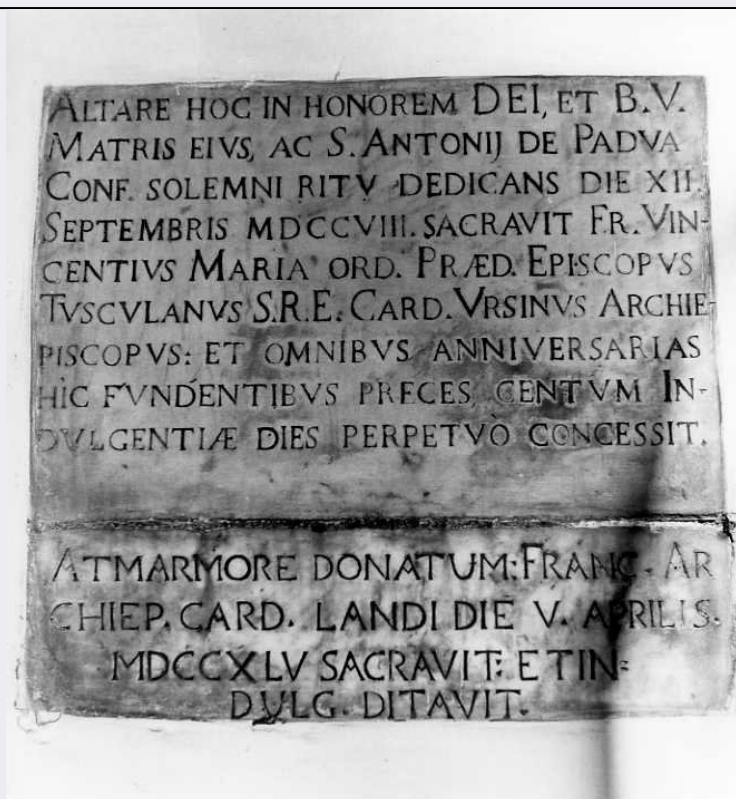 ALTARE HOC IN HONOREM DEI, ET B.V.
MATRIS EIVS, AC S. ANTONIJ DE PADVA
CONF. SOLEMNI RITV DEDICANS DIE XII.
SEPTEMBRIS MDCCVIII. SACRAVIT FR. VIN-
CENTIVS MARIA ORD. PRÆD. EPISCOPVS
TVSCVLANVS S.R.E. CARD. VRSINVS ARCHIE-
PISCOPVS: ET OMNIBVS ANNIVERSARIAS
HIC FVNDENTIBVS PRECES, CENTVM IN-
DVLGENTIÆ DIES PERPETVÒ CONCESSIT.
ATMARMORE DONATUM: FRANC. AR
CHIEP. CARD. LANDI DIE V. APRILIS.
MDCCXLV SACRAVIT: ET IN=
DVLG. DITAVIT.